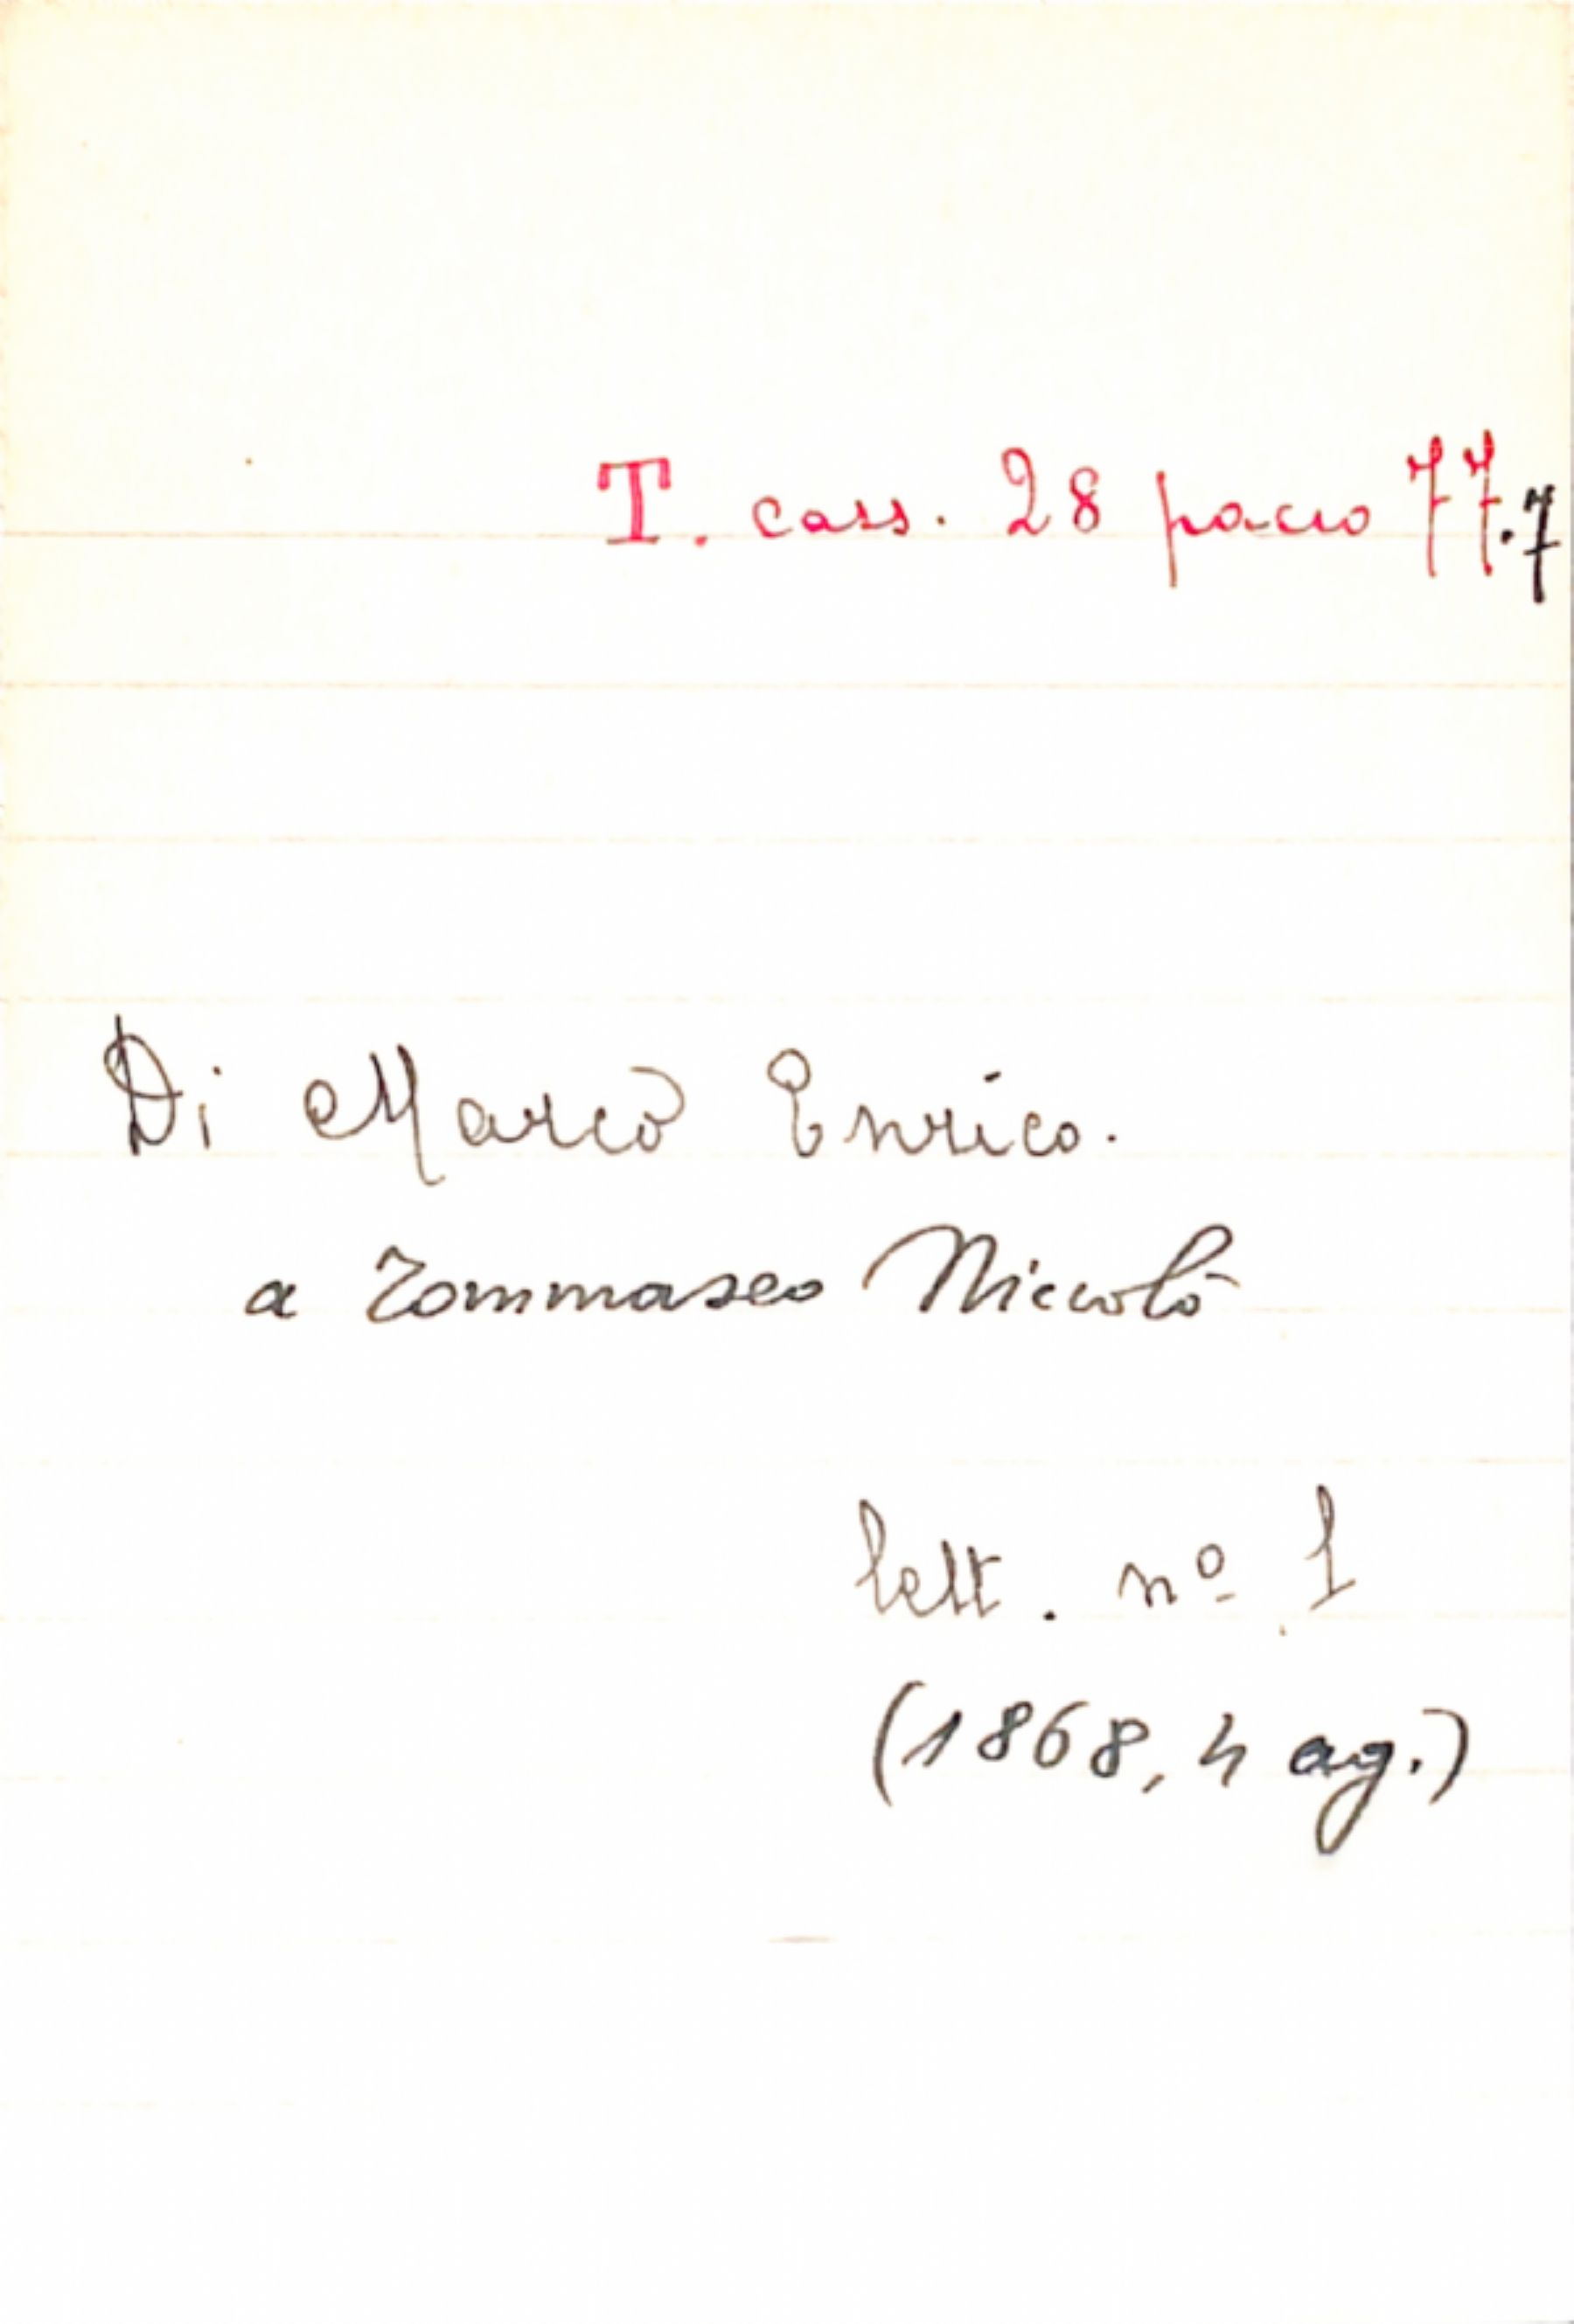 T. cass. 28 pacco 77.7
Di Marco Enrico.
a Tommaseo Niccolò
lett. nº 1
(1868, 4 ag.)